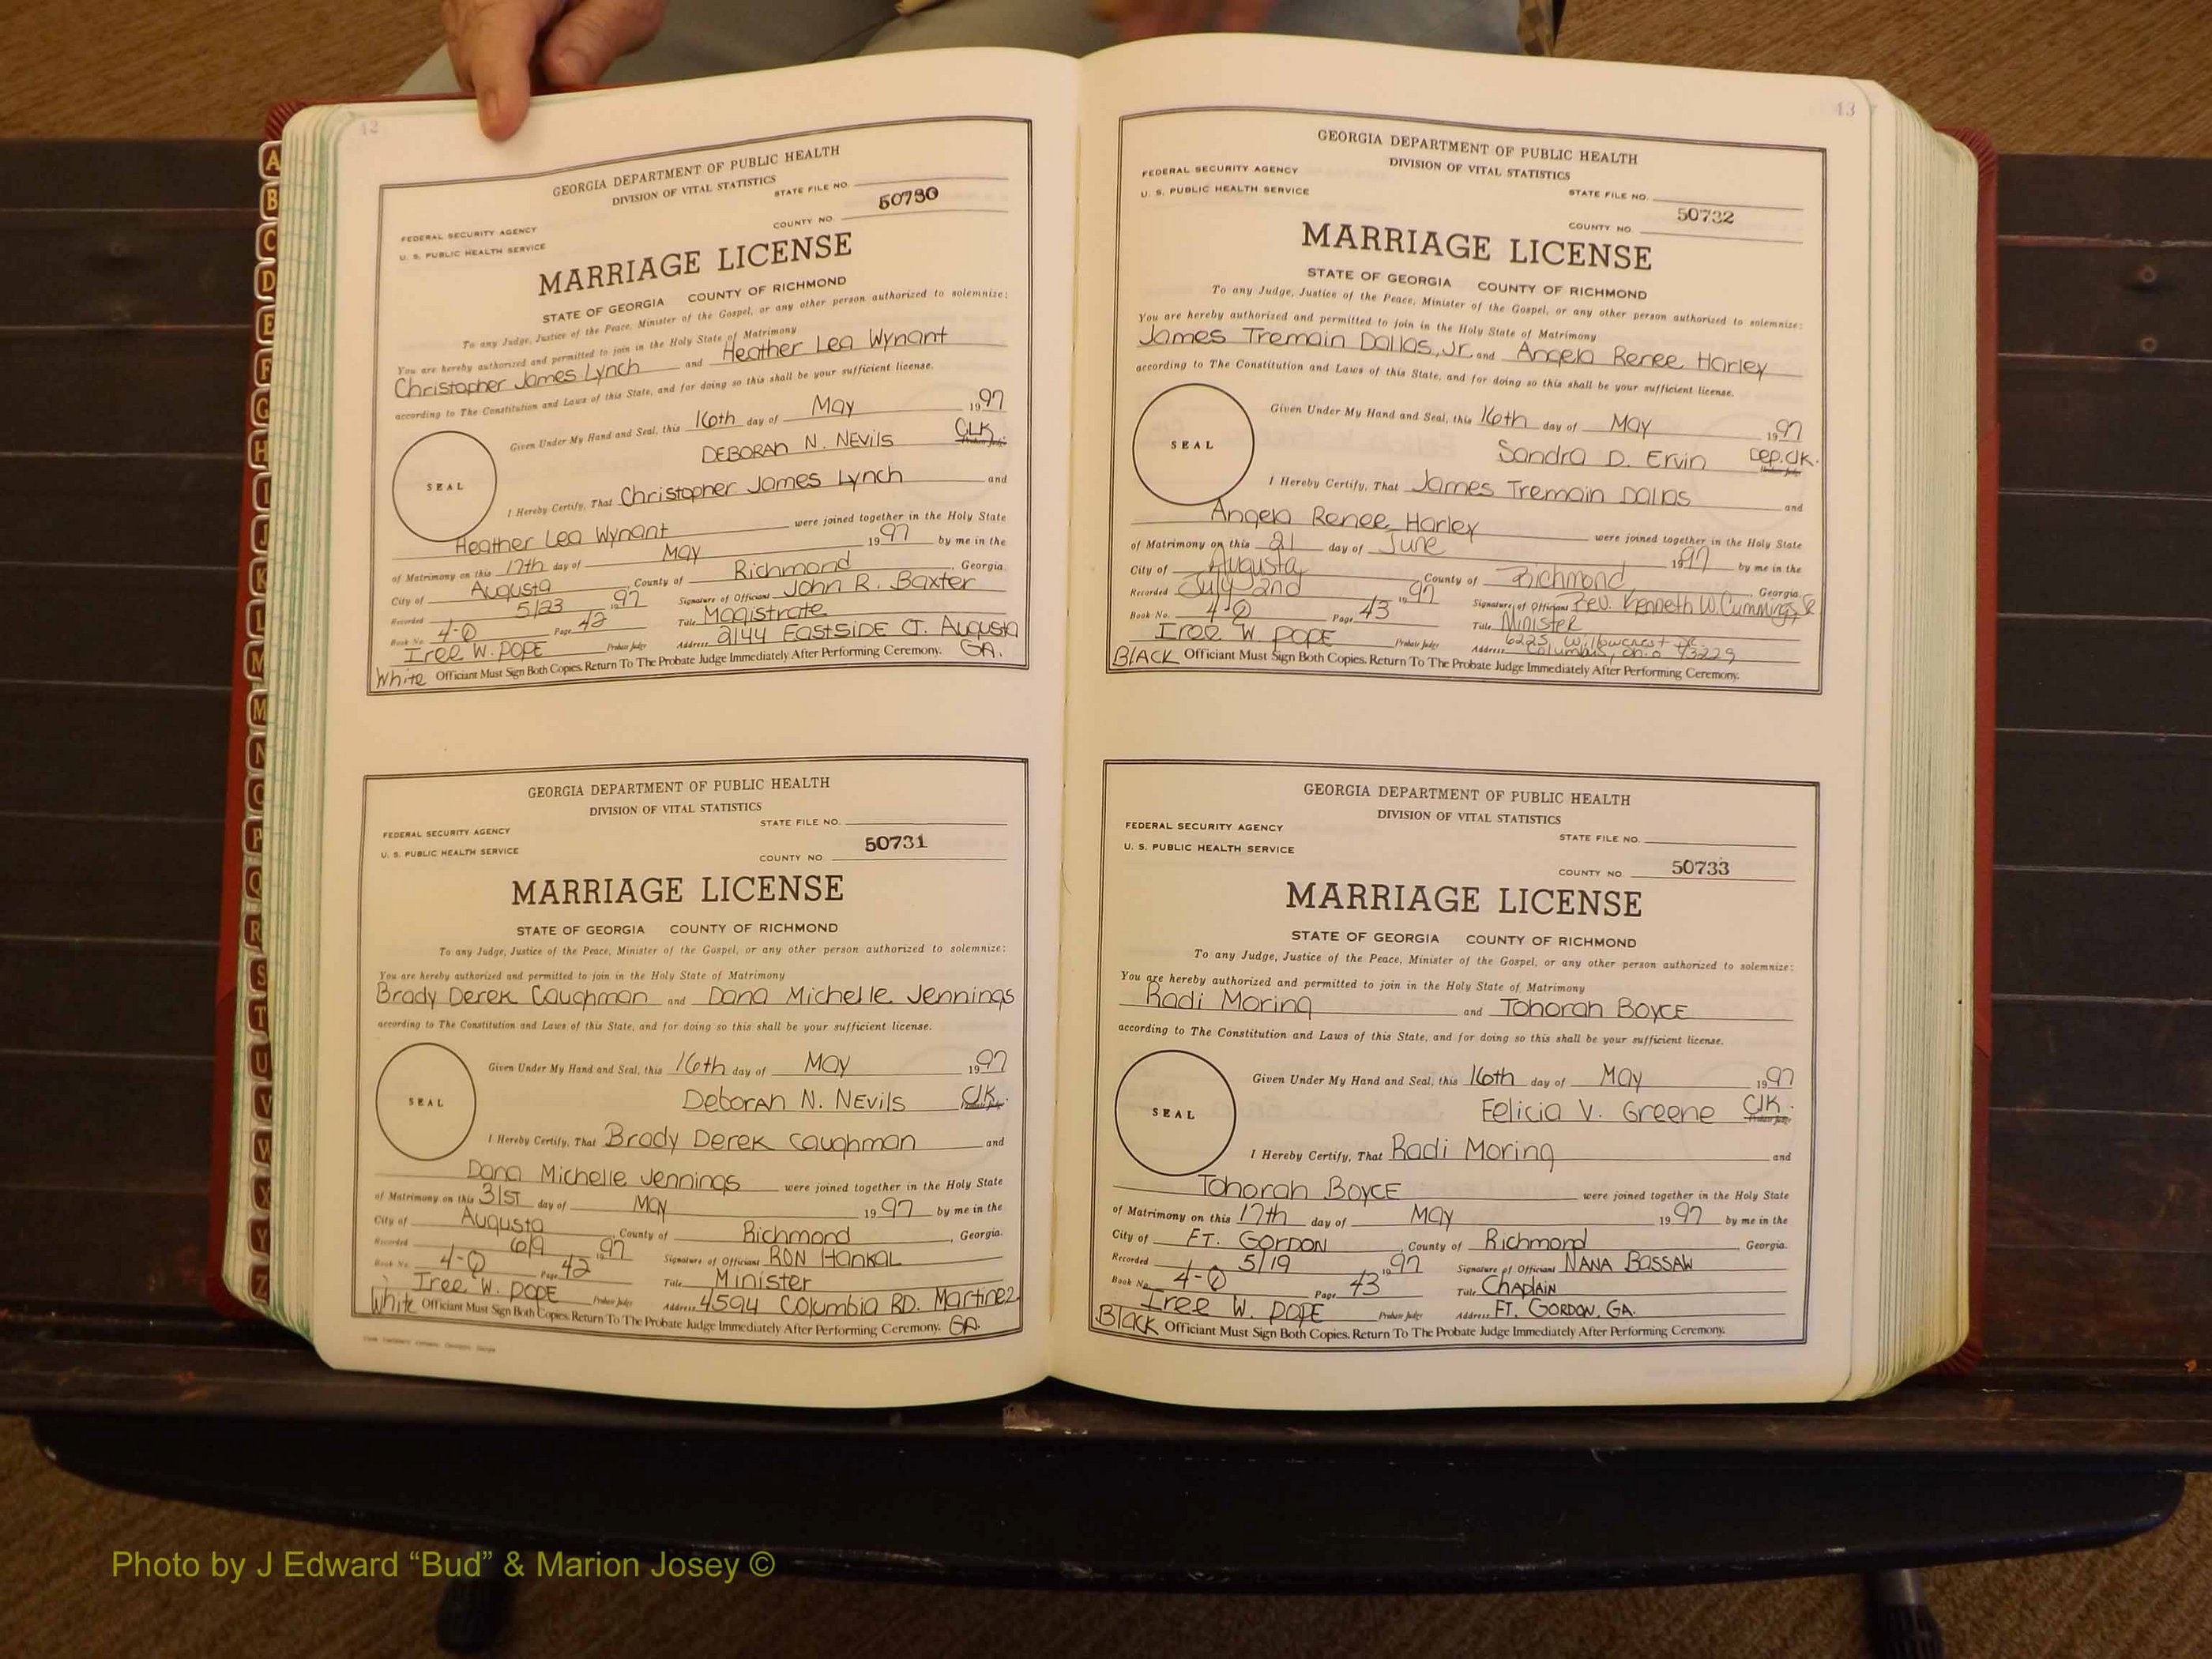 42
GEORGIA DEPARTMENT OF PUBLIC HEALTH
DIVISION OF VITAL STATISTICS
STATE FILE NO.
50730
COUNTY NO.
FEDERAL SECURITY AGENCY
U. S. PUBLIC HEALTH SERVICE
MARRIAGE LICENSE
STATE OF GEORGIA COUNTY OF RICHMOND
To any Judge, Justice of the Peace, Minister of the Gospel, or any other person authorized to solemnize:
You are hereby authorized and permitted to join in the Holy State of Matrimony
Christopher James Lynch and Heather Lea Wynant
according to The Constitution and Laws of this State, and for doing so this shall be your sufficient license.
Given Under My Hand and Seal, this 16th day of May 1997
DEBORAH N. NEVILS CLK.
Probate Judge
SEAL
I Hereby Certify, That Christopher James Lynch and
Heather Lea Wynant were joined together in the Holy State
of Matrimony on this 17th day of May 1997 by me in the
City of Augusta County of Richmond, Georgia.
Recorded 5/23 1997 Signature of Officiant John R. Baxter
Book No. 4-Q Page 42 Title Magistrate
Iree W. POPE Probate Judge Address 2144 EASTSIDE CT. Augusta GA.
White Officiant Must Sign Both Copies. Return To The Probate Judge Immediately After Performing Ceremony.
GEORGIA DEPARTMENT OF PUBLIC HEALTH
DIVISION OF VITAL STATISTICS
STATE FILE NO.
FEDERAL SECURITY AGENCY
50731
U. S. PUBLIC HEALTH SERVICE
COUNTY NO.
MARRIAGE LICENSE
STATE OF GEORGIA COUNTY OF RICHMOND
To any Judge, Justice of the Peace, Minister of the Gospel, or any other person authorized to solemnize:
You are hereby authorized and permitted to join in the Holy State of Matrimony
Brady Derek Caughman and Dana Michelle Jennings
according to The Constitution and Laws of this State, and for doing so this shall be your sufficient license.
Given Under My Hand and Seal, this 16th day of May 1997
Deborah N. Nevils Clk.
Probate Judge
SEAL
I Hereby Certify, That Brady Derek Caughman and
Dana Michelle Jennings were joined together in the Holy State
of Matrimony on this 31st day of May 1997 by me in the
City of Augusta, County of Richmond, Georgia.
Recorded 6/9 1997 Signature of Officiant RON Hankal
Book No. 4-Q Page 42 Title Minister
Iree W. POPE Probate Judge Address 4594 Columbia RD. Martinez GA.
White Officiant Must Sign Both Copies. Return To The Probate Judge Immediately After Performing Ceremony.
43
GEORGIA DEPARTMENT OF PUBLIC HEALTH
DIVISION OF VITAL STATISTICS
FEDERAL SECURITY AGENCY
U. S. PUBLIC HEALTH SERVICE
STATE FILE NO.
50732
COUNTY NO.
MARRIAGE LICENSE
STATE OF GEORGIA COUNTY OF RICHMOND
To any Judge, Justice of the Peace, Minister of the Gospel, or any other person authorized to solemnize:
You are hereby authorized and permitted to join in the Holy State of Matrimony
James Tremain Dallas, Jr. and Angela Renee Harley
according to The Constitution and Laws of this State, and for doing so this shall be your sufficient license.
Given Under My Hand and Seal, this 16th day of May 1997
Sandra D. Ervin Dep. Clk.
Probate Judge
SEAL
I Hereby Certify, That James Tremain Dallas and
Angela Renee Harley were joined together in the Holy State
of Matrimony on this 21 day of June 1997 by me in the
City of Augusta, County of Richmond, Georgia.
Recorded July 2nd 1997 Signature of Officiant Rev. Kenneth W. Cummings,
Book No. 4-Q Page 43 Title Minister
Iree W. POPE Probate Judge Address 6225 Willowcrest Dr. Columbus, Ohio 43229
BLACK Officiant Must Sign Both Copies. Return To The Probate Judge Immediately After Performing Ceremony.
GEORGIA DEPARTMENT OF PUBLIC HEALTH
DIVISION OF VITAL STATISTICS
FEDERAL SECURITY AGENCY
STATE FILE NO.
U. S. PUBLIC HEALTH SERVICE
50733
COUNTY NO.
MARRIAGE LICENSE
STATE OF GEORGIA COUNTY OF RICHMOND
To any Judge, Justice of the Peace, Minister of the Gospel, or any other person authorized to solemnize:
You are hereby authorized and permitted to join in the Holy State of Matrimony
Radi Moring and Tohorah BOYCE
according to The Constitution and Laws of this State, and for doing so this shall be your sufficient license.
Given Under My Hand and Seal, this 16th day of May 1997
Felicia V. Greene Clk.
Probate Judge
SEAL
I Hereby Certify, That Radi Moring and
Tohorah BOYCE were joined together in the Holy State
of Matrimony on this 17th day of May 1997 by me in the
City of FT. GORDON, County of Richmond, Georgia.
Recorded 5/19 1997 Signature of Officiant NANA BASSAW
Book No. 4-Q Page 43 Title CHAPLAIN
Iree W. POPE Probate Judge Address FT. GORDON, GA.
BLACK Officiant Must Sign Both Copies. Return To The Probate Judge Immediately After Performing Ceremony.
A
B
C
D
E
F
G
H
I
J
K
L
M
M
N
O
P
Q
R
S
T
U
V
W
X
Y
Z
Photo by J Edward “Bud” & Marion Josey ©